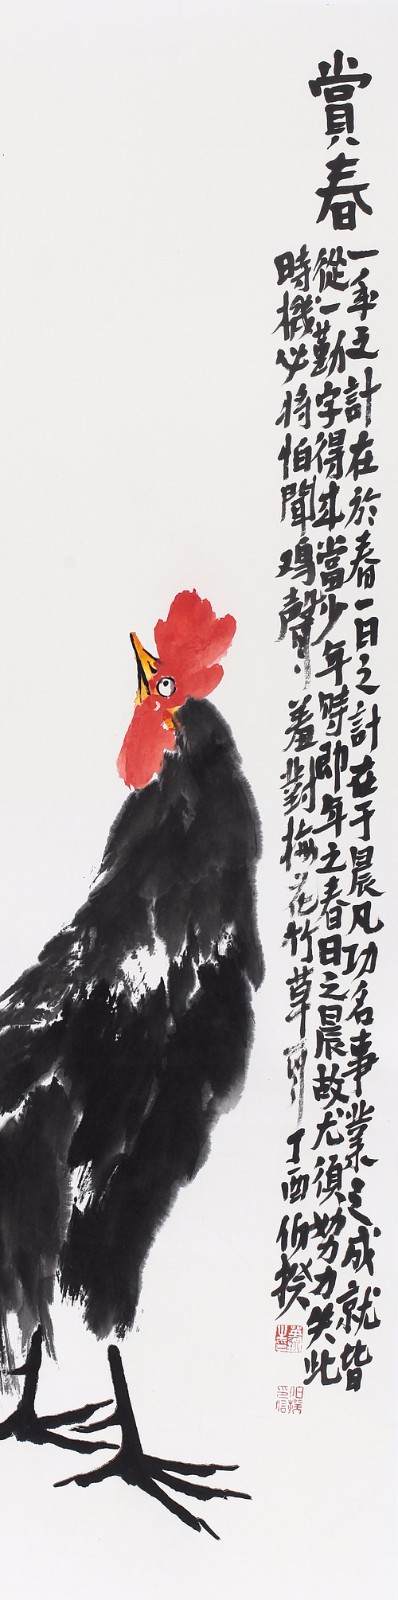 賞春
一年之計在於春一日之計在于晨凡功名事業之成就皆
從一勤字得來當少年時即年之春日之晨故尤須努力失此
時機必將怕聞鸡聲羞對梅花竹草
丁酉伯揆